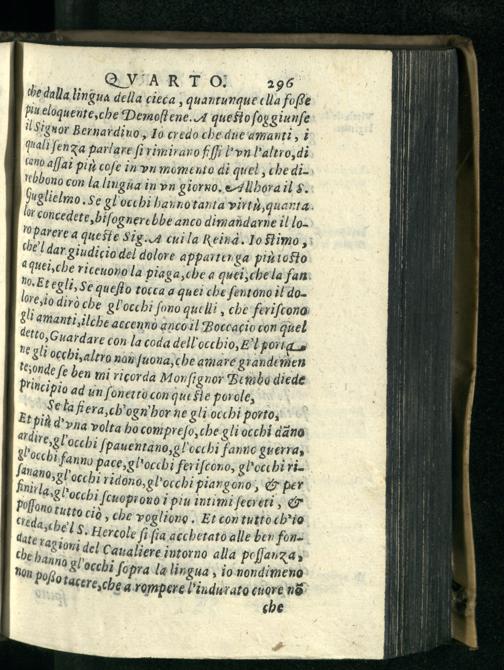 QVARTO. 296
che dalla lingua della cieca, quantunque ella foße
piu eloquente, che Demostene. A questo soggiunse
il Signor Bernardino, Io credo che due amanti, i
quali senza parlare si rimirano fissi l'vn l'altro, di
cano assai più cose in vn momento di quel, che di-
rebbono con la lingua in vn giorno. Allhora il S.
Guglielmo. Se gl'occhi hanno tanta virtù, quanta
lor concedete, bisognerebbe anco dimandarne il lo-
ro parere a queste Sig. A cui la Reina. Io stimo,
che'l dar giudicio del dolore appartenga più tosto
a quei, che riceuono la piaga, che a quei, che la fan
no. Et egli, Se questo tocca a quei che sentono il do-
lore, io dirò che gl'occhi sono quelli, che feriscono
gli amanti, ilche accennò anco il Boccacio con quel
detto, Guardare con la coda dell'occhio, E'l porta
ne gli occhi, altro non suona, che amare grandemen
te; onde se ben mi ricorda Monsignor Bembo diede
principio ad un sonetto con queste parole,
Se la fiera, ch'ogn'hor ne gli occhi porto,
Et più d'vna volta ho compreso, che gli occhi dãno
ardire, gl'occhi spauentano, gl'occhi fanno guerra,
gl'occhi fanno pace, gl'occhi feriscono, gl'occhi ri-
sanano, gl'occhi ridono, gl'occhi piangono, & per
finirla, gl'occhi scuoprono i piu intimi secreti, &
possono tutto ciò, che vogliono. Et con tutto ch'io
creda, che'l S. Hercole si sia acchetato alle ben fon-
date ragioni del Caualiere intorno alla possanza,
che hanno gl'occhi sopra la lingua, io nondimeno
non poßo tacere, che a rompere l'indurato cuore nõ
che